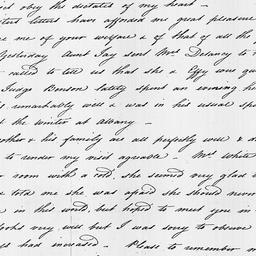 obey the dictates of my heart –
letters have afforded me great pleasure
me of your welfare & of that of all the
Yesterday Aunt Jay sent Mrs Delancy to
called to tell us that she & Effy were
Judge Benson lately spent an evening
is remarkably well & was in his usual
the winter at Albany –
& his family are all perfectly well &
to render my visit agreable – Mrs White
room with a cold, she seemed very glad
told me she was afraid she should never
in this world, but hoped to meet you in
looks very well but I was sorry to observe
had increased – Please to remember